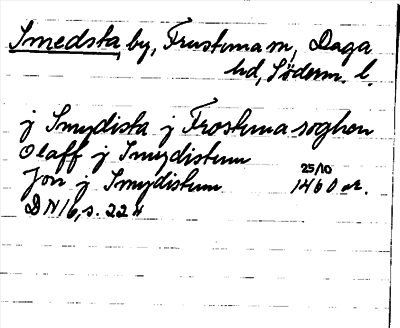 Smedsta by, Frustuna sn, Daga
hd, Söderm. l.
j Smydista j Frostuna soghen
Olaff j Smydistum
Jon j Smydistum 25/10 1460 or.
DN 16, s. 224